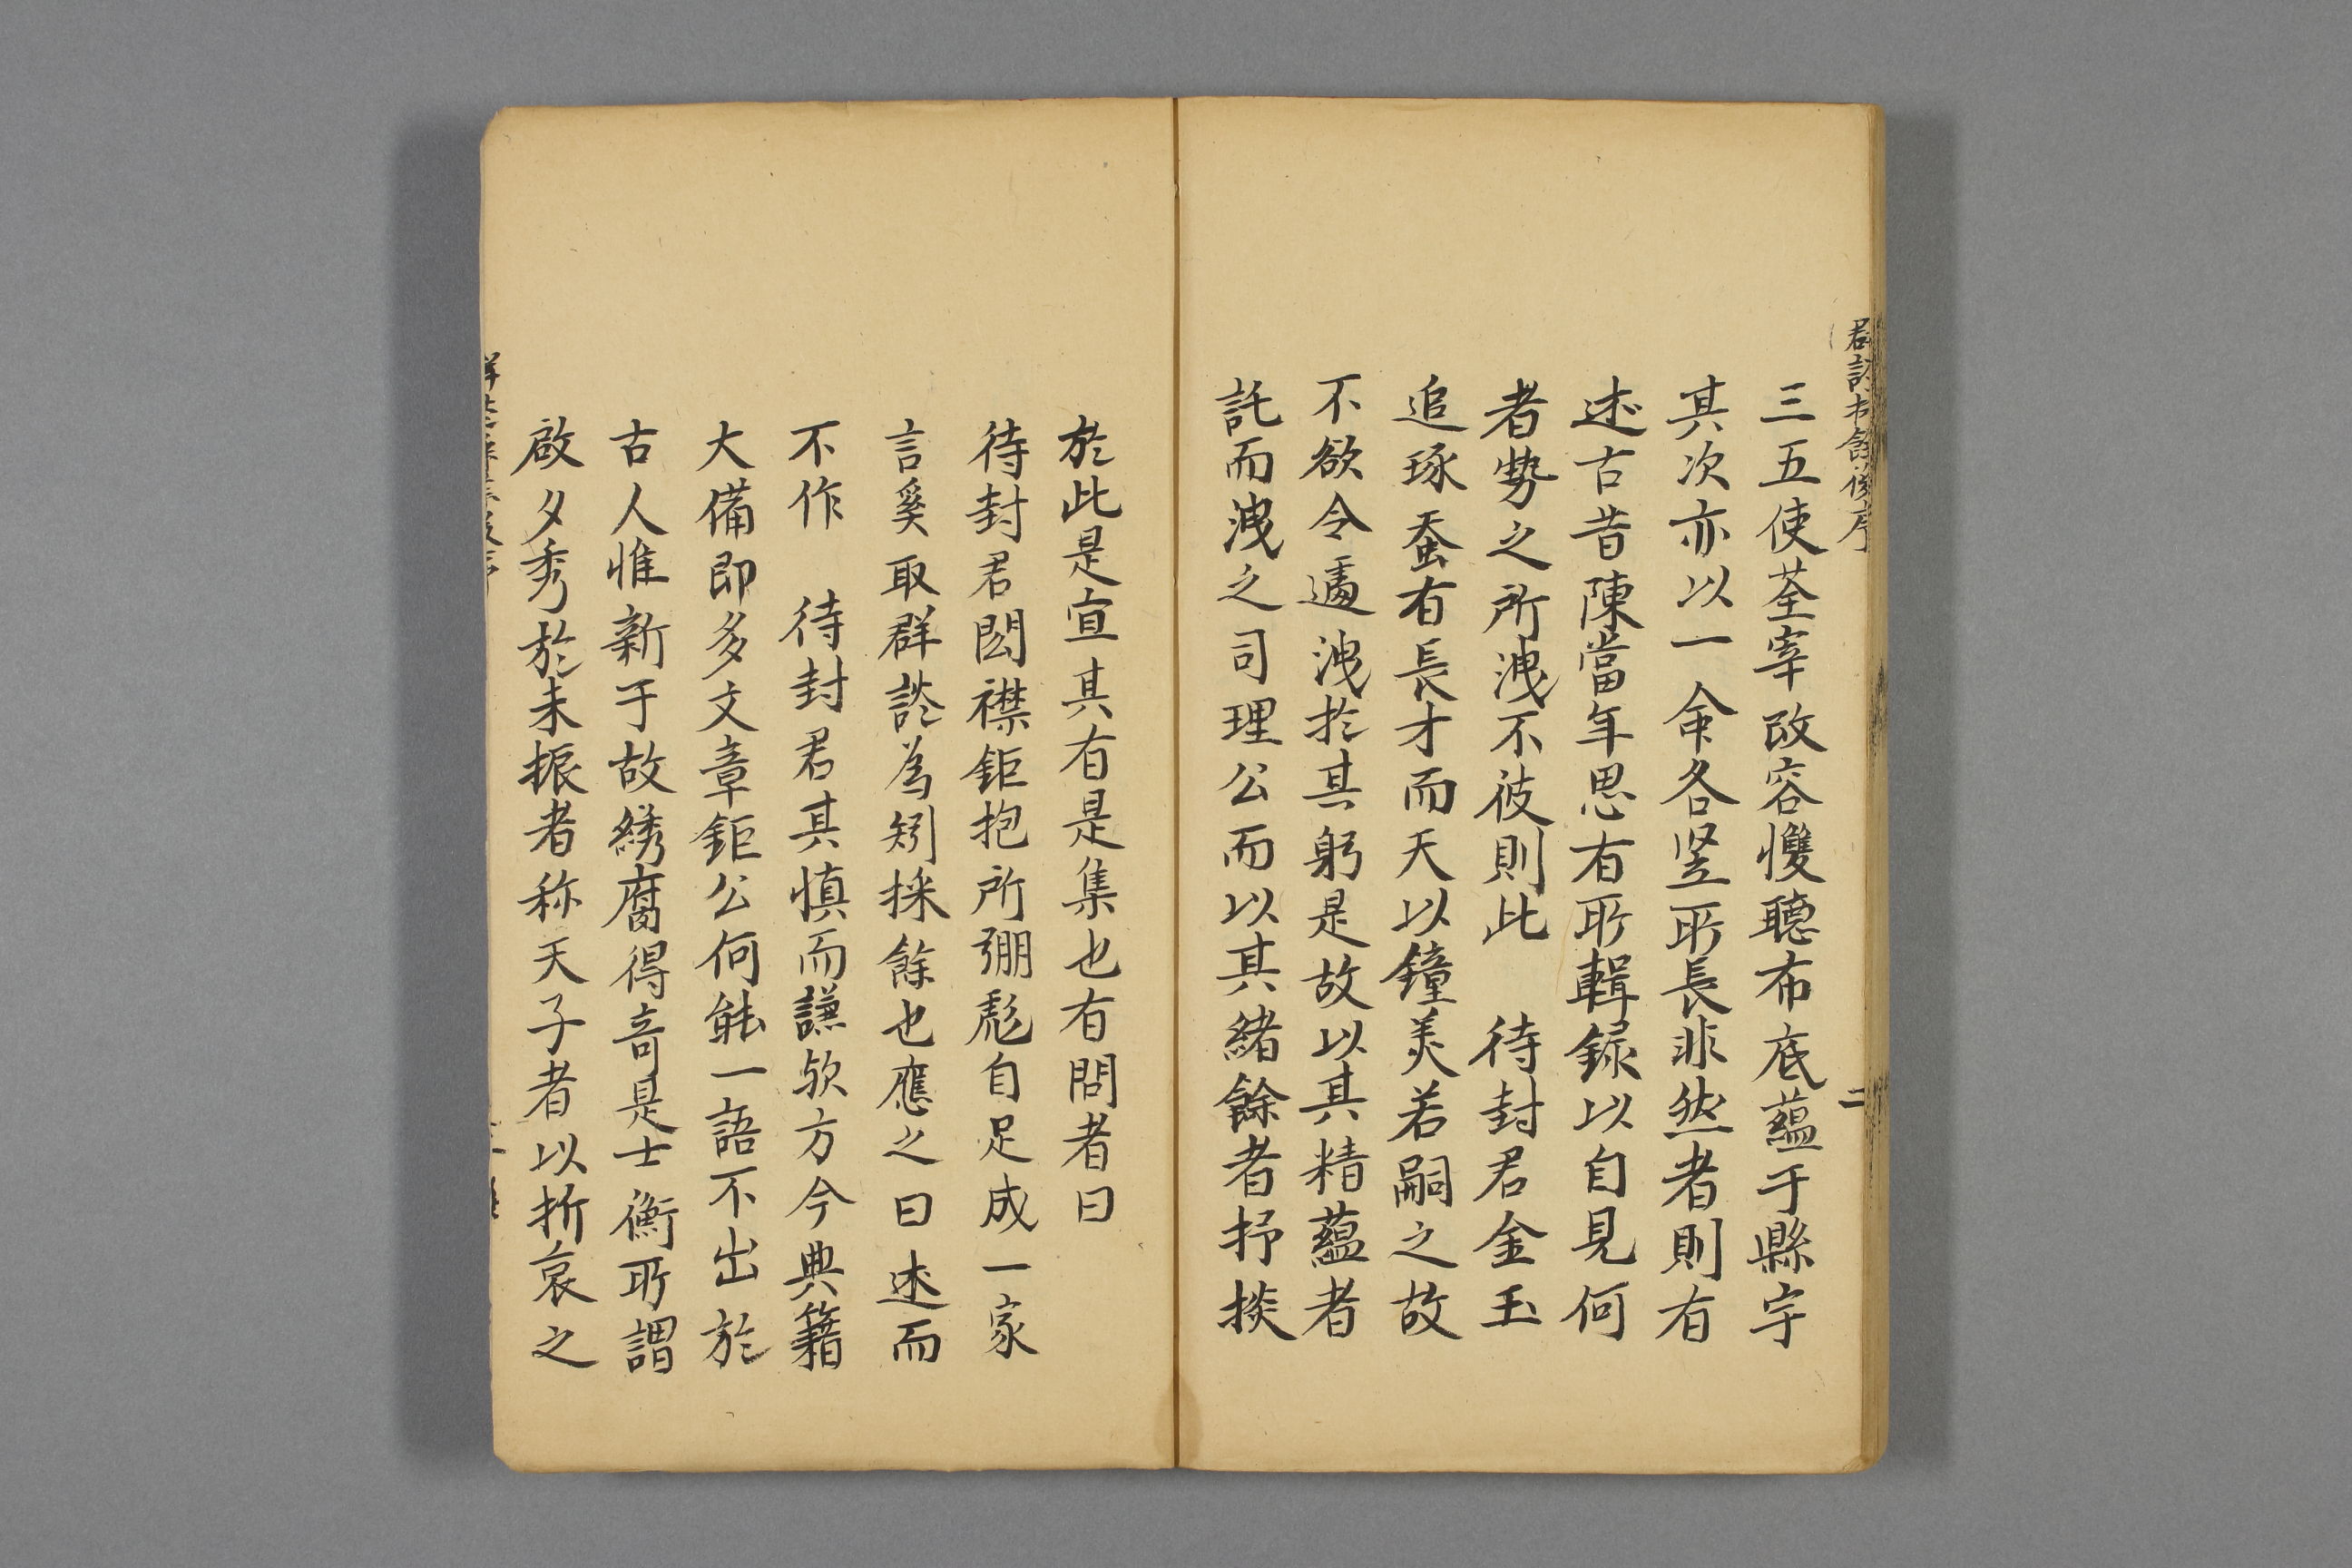 三五使荃宰改容戄聽布底蘊于縣宇
其次亦以一命各竖所長非然者則有
述古昔陳當年思有所輯録以自見何
者勢之所洩不彼則此　待封君金玉
追琢蚤有長才而天以鐘美若嗣之故
不欲令遽洩於其躬是故以其精蘊者
託而洩之司理公而以其緒餘者抒掞
於此是宜其有是集也有問者曰
待封君閎襟鉅抱所弸彪自足成一家
言奚取群談為矧採餘也應之曰述而
不作　待封君其慎而謙欤方今典籍
大備即多文章鉅公何能一語不出於
古人惟新于故綉腐得奇是士衡所謂
啟夕秀於未振者称天子者以折衷之
二